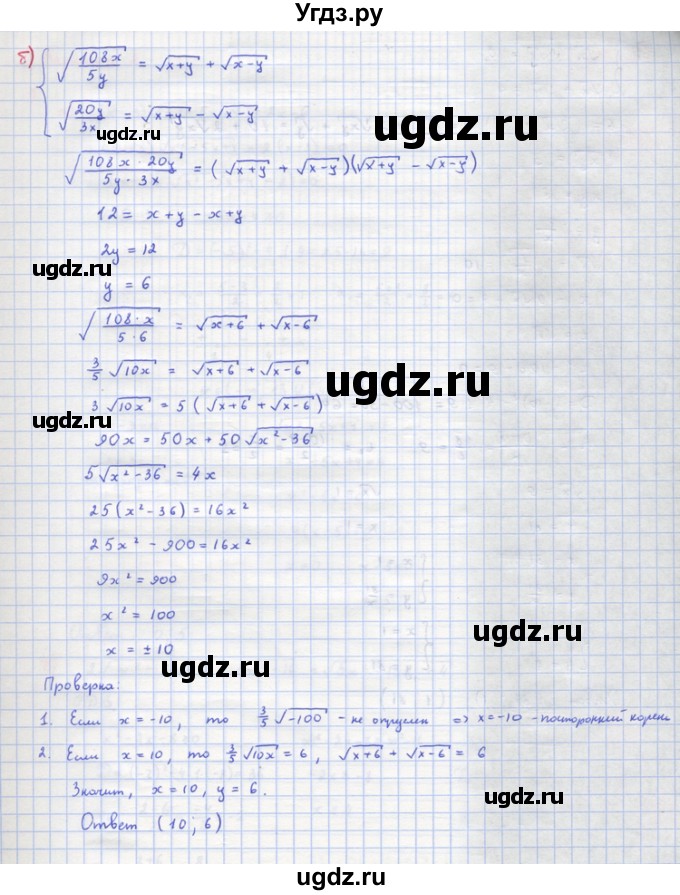 Угдз.ру
б) √(108x/5y) = √(x+y) + √(x-y)
√(20y/3x) = √(x+y) - √(x-y)
ugdz.ru
ugdz.ru
√(108x·20y/5y·3x) = (√(x+y) + √(x-y))(√(x+y) - √(x-y))
12 = x+y - x+y
2y = 12
ugdz.ru
ugdz.ru
y = 6
√(108·x/5·6) = √(x+6) + √(x-6)
3/5 √10x = √(x+6) + √(x-6)
ugdz.ru
3√10x = 5(√(x+6) + √(x-6))
ugdz.ru
90x = 50x + 50√(x²-36)
5√(x²-36) = 4x
25(x²-36) = 16x²
ugdz.ru
25x² - 900 = 16x²
ugdz.ru
9x² = 900
x² = 100
ugdz.ru
x = ±10
ugdz.ru
Проверка:
1. Если x = -10, то 3/5 √-100 - не определен => x = -10 - посторонний корень
2. Если x = 10, то 3/5 √10x = 6, √(x+6) + √(x-6) = 6
ugdz.ru
Значит, x = 10, y = 6.
Ответ (10; 6)
ugdz.ru
ugdz.ru